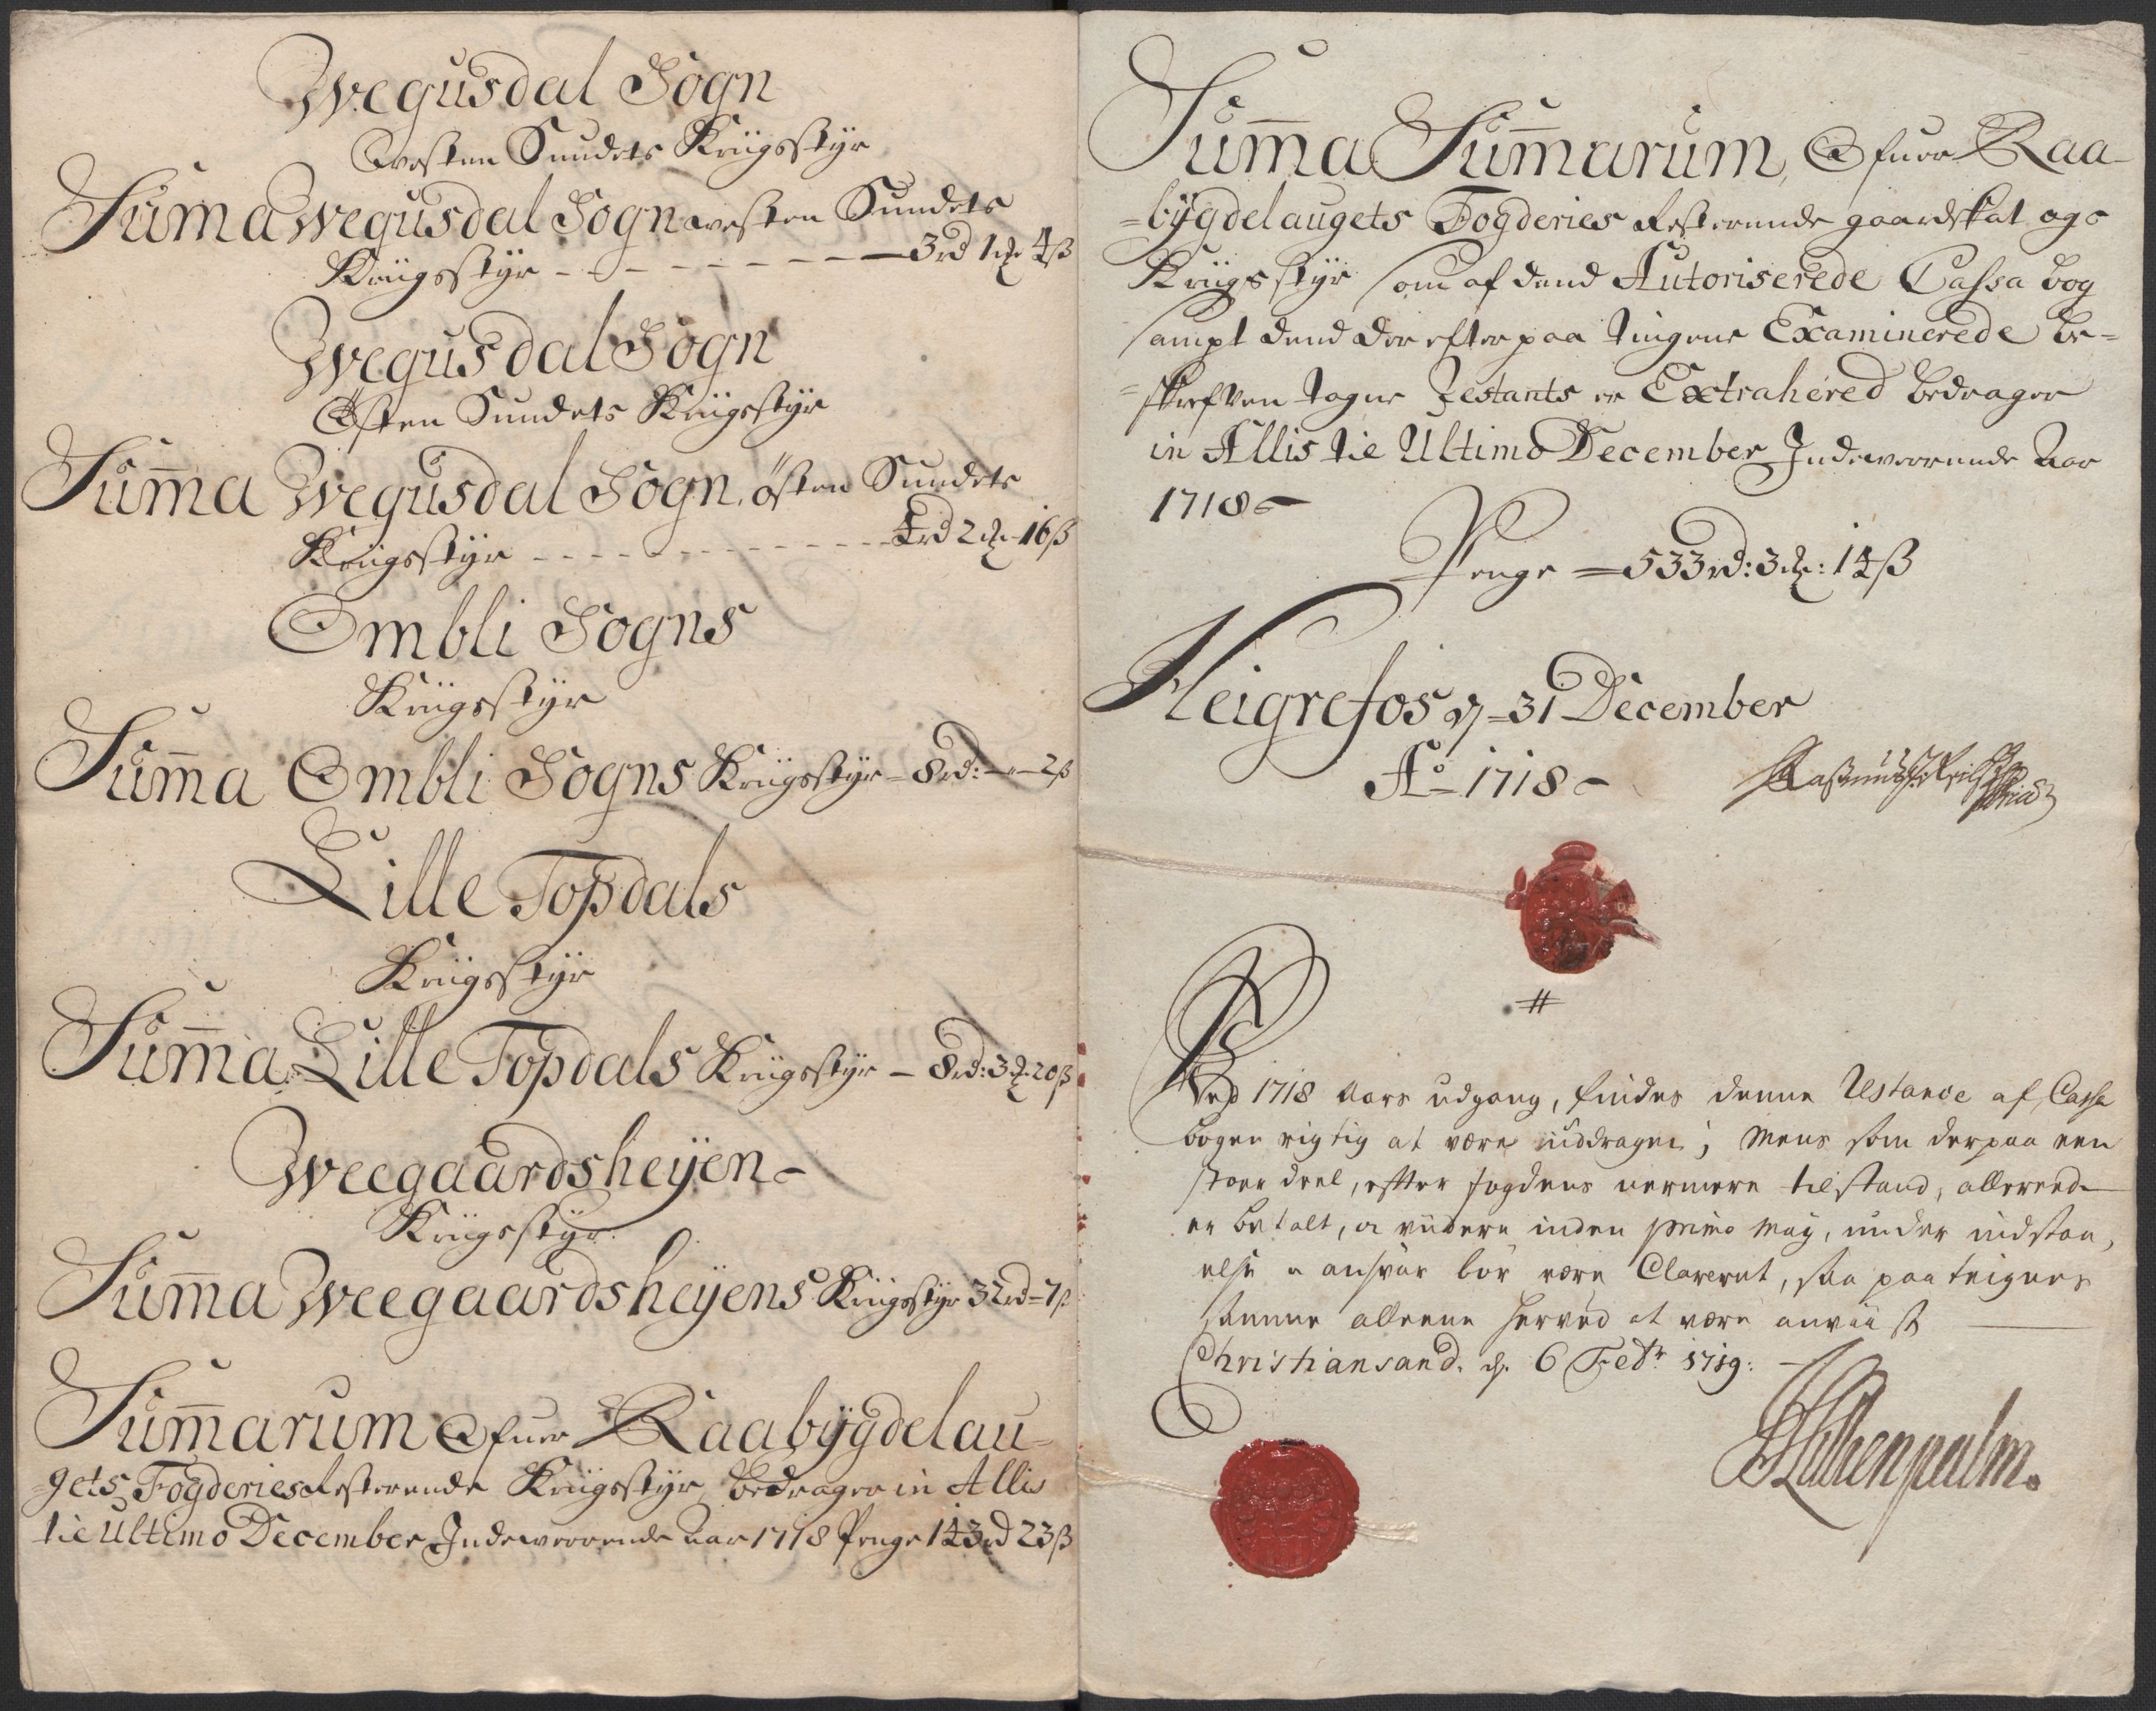 Wegusdal Sogn
Westen Sundets Kriigsstÿr
Suma Wegusdal Sogn westen Sundets
Kriigsstÿr - - - - - - - - 3rd 1 4ß
Wegusdal Sogn
Østen Sundets Kriigsstÿr
Sum̄a Wegusdal Sogn, østen Sundets
Kriigsstÿr - - - - - - - - 4rd 2 16ß
Ombli Sogns
Kriigsstÿr
Sum̄a Ombli Sogns Kriigsstÿr - 8rd: - 2ß
Lille Topdals
Kriigsstÿr
Sum̄a Lille Topdals Kriigsstÿr - 8rd: 3 20ß
Weegaardsheÿen
Kriigsstÿr
Sum̄a Weegaardsheÿens Kriigsstÿr 32rd - 7ß
Sum̄arum Ofuer Raabÿgdelau-
gets Fogderies Resterende Kriigsstÿr, bedrager in Allis
til Ultimo December Indeværende Aar 1718 Penge 143rd 23ß
Sum̄a Sum̄arum, Ofuer Raa-
=bÿgdelaugets Fogderies Resterende gaardskat og
Kriigsstÿr som af dend Autoriserede Cassa bog
sampt dend der efter paa tingene Examinerede be=
=skrefven tagne Restants er Extrahered bedrager
in Allis til Ultimo December Indeværende Aar
1718
Penge = 533rd: 3: 14ß
Heigrefos d = 31 December
A° 1718
Ved 1718 Aars udgang, findes denne Restance af Cassa
bogen rigtig at være uddragen; Mens som derpaa een
stoer deel, efter fogdens nermere tilstand, allerede
er betalt, og videre inden primo Maÿ, under indstaa,
else ansvar bør være Clareret, saa paategnes
samme alleene herved at være anviist
Christiansand. d. 6 Febr 1719.